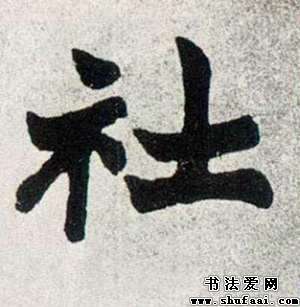 社
书法爱网
www.shufaai.com